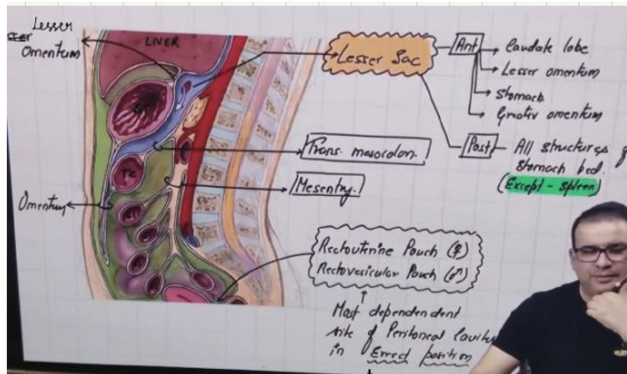 Lesser
Omentum
LIVER
TC
Omentum
Lesser Sac
Ant
Caudate lobe
Lesser omentum
Stomach
Greater omentum
Post
All structures of
Stomach bed.
(Except - spleen)
Trans. mesocolon.
Mesentry.
Rectouterine Pouch (♀)
Rectovesicular Pouch (♂)
Most dependent
site of Peritoneal Cavity
in Errect position